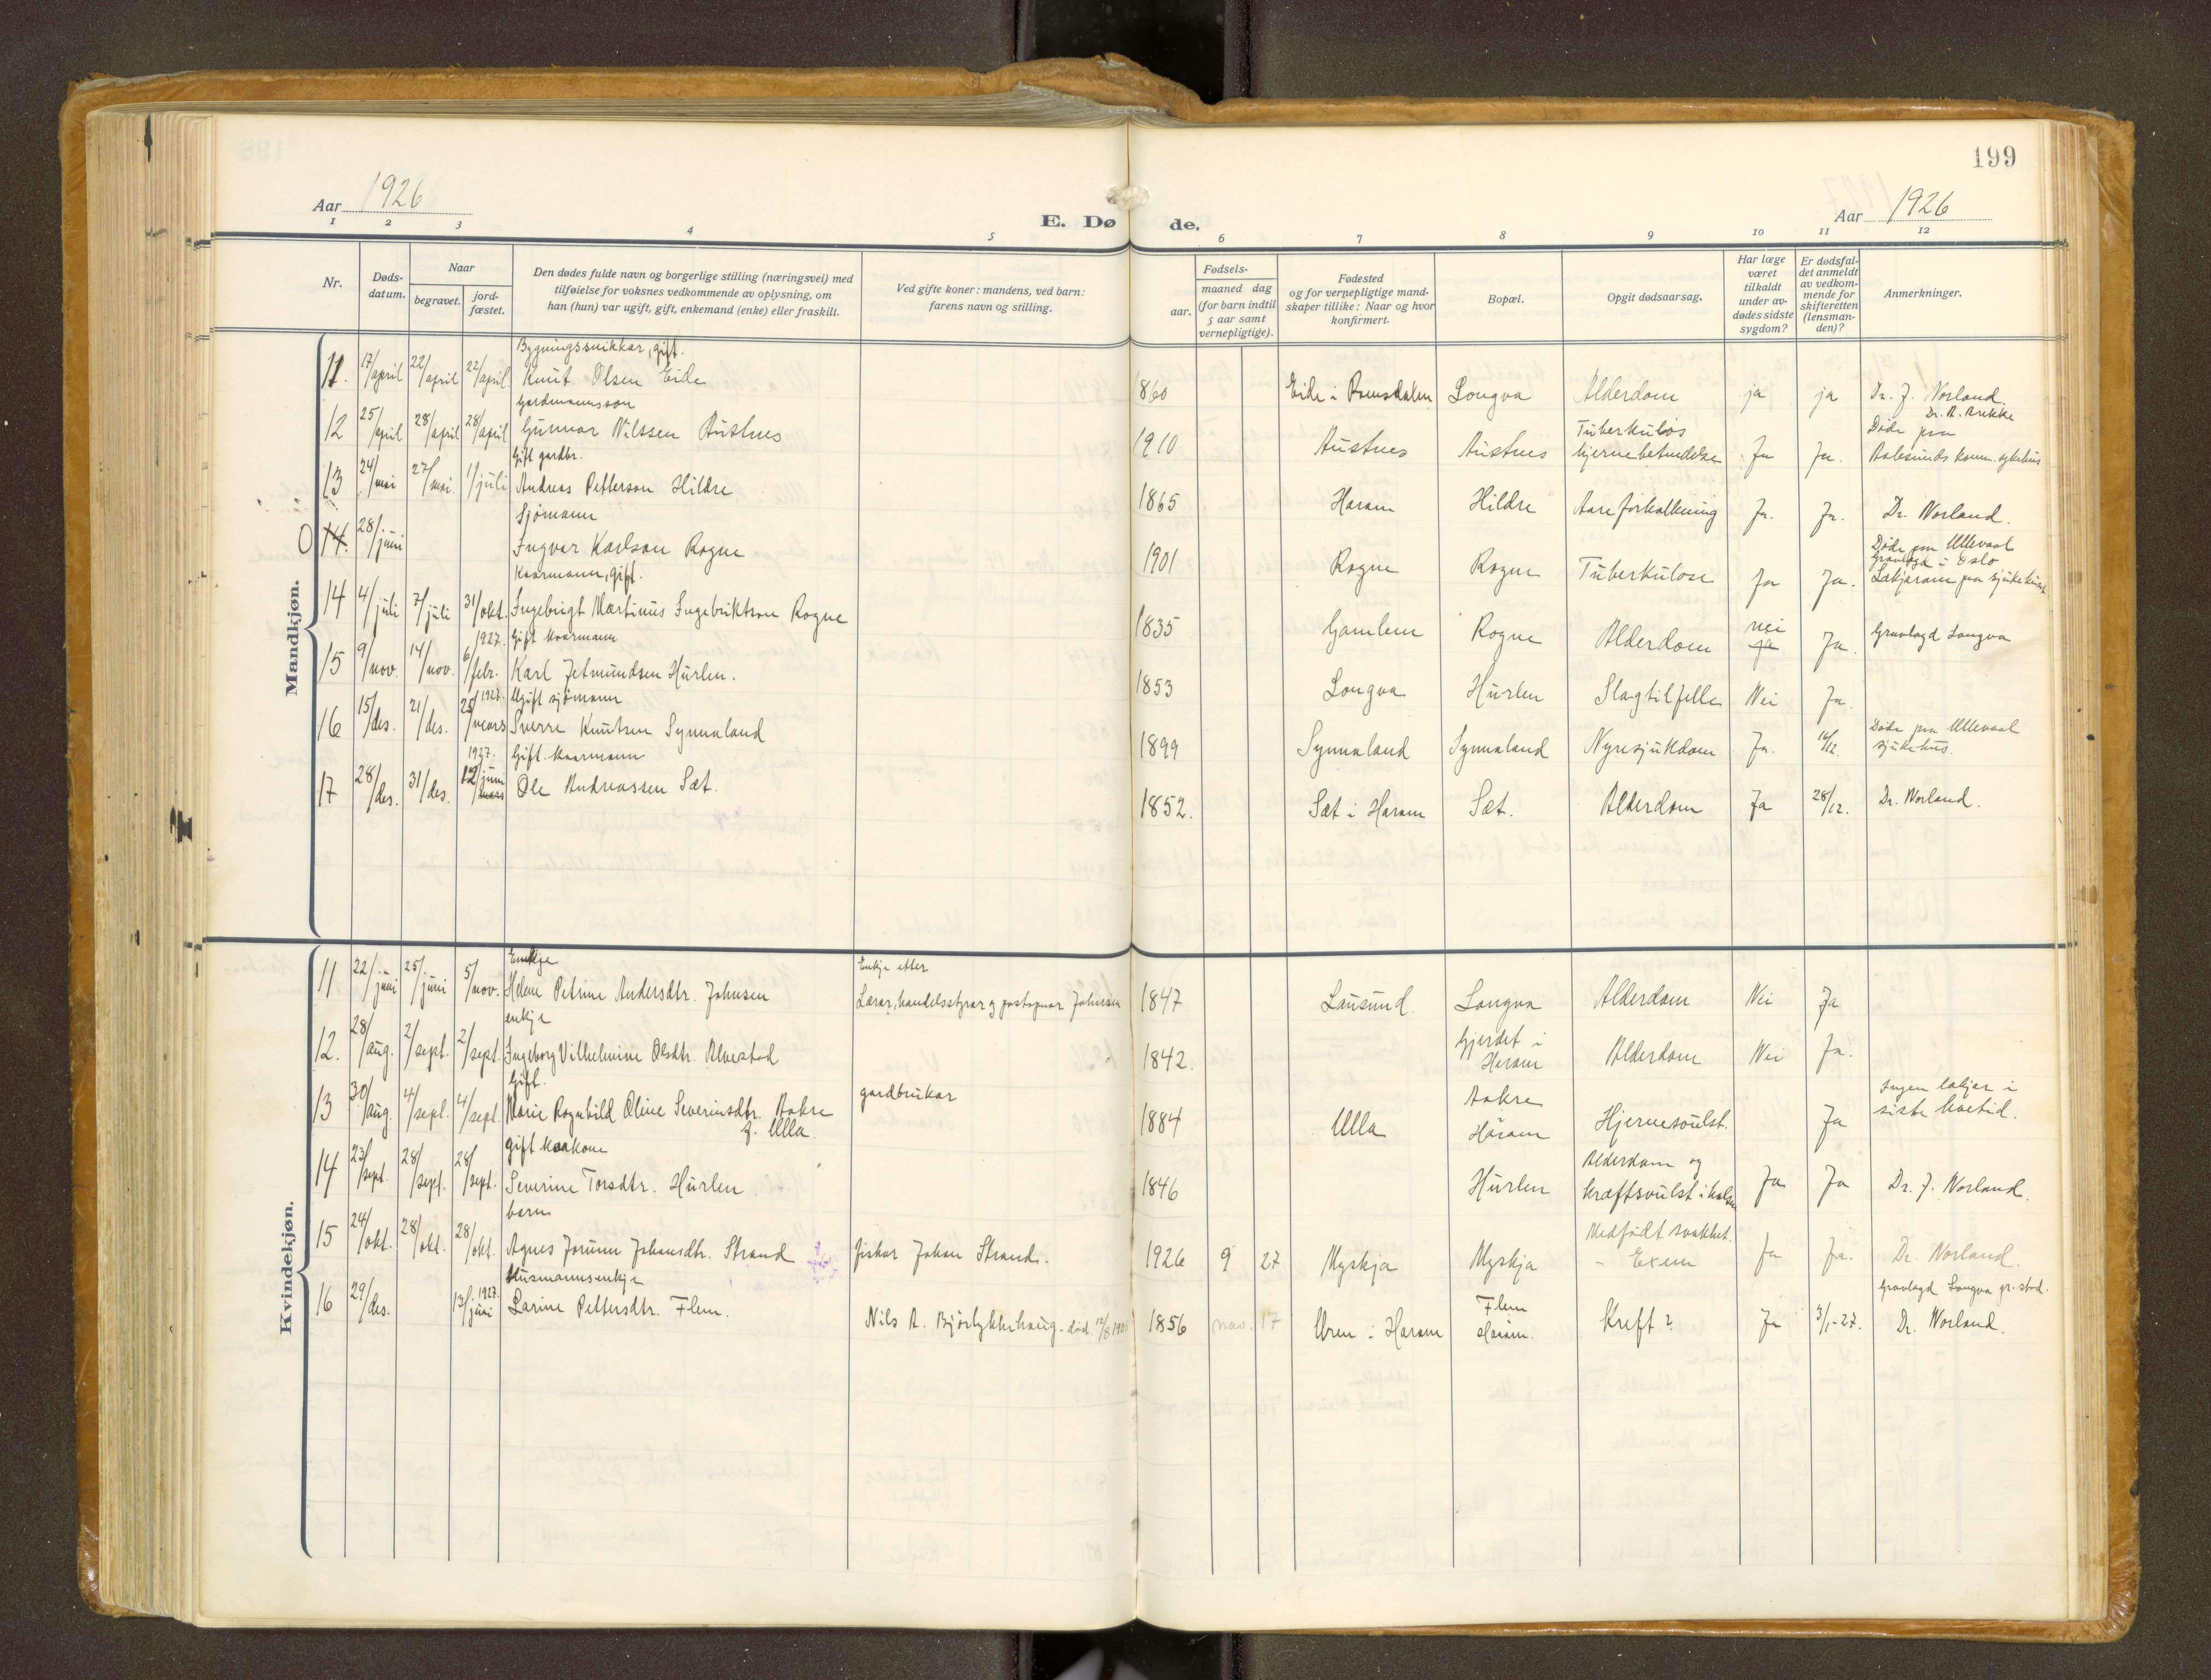 199
Aar 1926
E. Døde.
Aar 1926
1 2 3 4 5 6 7 8 9 10 11 12
Nr.
Døds-datum.
Naar
begravet.
jord-fæstet.
Den dødes fulde navn og borgerlige stilling (næringsvei) med
tilføielse for voksnes vedkommende av oplysning, om
han (hun) var ugift, gift, enkemand (enke) eller fraskilt.
Ved gifte koner: mandens, ved barn:
farens navn og stilling.
Fødsels-
aar.
maaned dag
(for barn indtil
5 aar samt
vernepligtige).
Fødested
og for vernepligtige mand-
skaper tillike: Naar og hvor
konfirmert.
Bopæl.
Opgit dødsaarsag.
Har læge
været
tilkaldt
under av-
dødes sidste
sygdom?
Er dødsfal-
det anmeldt
av vedkom-
mende for
skifteretten
(lensman-
den)?
Anmerkninger.
Mandkjøn.
Bygningssnikkar, gift.
11. 17/april 22/april 22/april Knut Olsen Eide 1860 Eide i Romsdalen Longva Alderdom ja ja Dr. J. Norland.
Dr. A. Brekke
Gardmannsson Tuberkuløs Døde paa
12 25/april 28/april 28/april Gunnar Nilssen Austnes 1910 Austnes Austnes hjernebetendelse Ja Ja. Aalesunds komm. sykehus
Gift gardbr.
13 24/mai 27/mai 1/juli Andreas Petterson Hildre 1865 Haram Hildre Aareforkalkning Ja. Ja. Dr. Norland.
Sjømann Døde paa Ullevaal
0 14. 28/juni Ingvar Karlson Rogne 1901 Rogne Rogne Tuberkulose Ja Ja. Gravlagd i Oslo
Lækjaram paa sjukehuset
Kaarmann, gift.
14 4/juli 7/juli 31/okt. Ingebrigt Martinus Ingebriktson Rogne 1835 Gamlem Rogne Alderdom nei ja Ja. Gravlagd Longva
1927. Gift kaarmann
15 9/nov. 14/nov. 6/febr. Karl Jetmundsen Hurlen. 1853 Longva Hurlen Slagtilfelle Nei Ja.
1927. Ugift sjømann Døde paa Ullevaal
16 15/des. 21/des. 25/mars Sverre Knutsen Synnaland 1899 Synnaland Synnaland Nyresjukdom Ja. 16/12. sjukehus.
1927. Gift kaarmann
17 28/des. 31/des. 12/juni mars Ole Andreassen Sæt. 1852. Sæt i Haram Sæt. Alderdom Ja 28/12. Dr. Norland.
Kvindekjøn.
Enkje Enkje etter
11 22/juni 25/juni 5/nov. Helene Petrine Andersdtr. Johnsen Lærar, handelsstyrar og postopnar Johnsen 1847 Lausund. Longva Alderdom Nei Ja
enkje Gjerdet i
12. 28/aug. 2/sept. 2/sept. Ingeborg Vilhelmine Olsdtr. Alvestad 1842. Haram Alderdom Nei Ja.
Gift. Aakre Ingen lækjar i
13 30/aug. 4/sept. 4/sept. Marie Ragnhild Oline Severinsdtr. Aakre gardbrukar 1884 Ulla Haram Hjernesvulst. Ja siste levetid.
f. Ulla.
gift kaakone Alderdom og
14 23/sept. 28/sept. 28/sept. Severine Torsdtr. Hurlen 1846 Hurlen kræftsvulst i halsen Ja Ja Dr. J. Norland.
barn Medfødt svakhet.
15 24/okt. 28/okt. 28/okt. Agnes Jorunn Johansdtr. Strand fiskar Johan Strand. 1926 9 27 Myskja Myskja - Exem Ja Ja. Dr. Norland.
1927. Husmannsenkje Gravlagd Longva gr. stad.
16 29/des. 13/juni Larine Pettersdtr. Flem. Nils A. Bjørlykkhaug - død. 12/8 1856 nov. 17 Uren i Haram Flem Haram. Kreft? Ja 3/1-27. Dr. Norland.